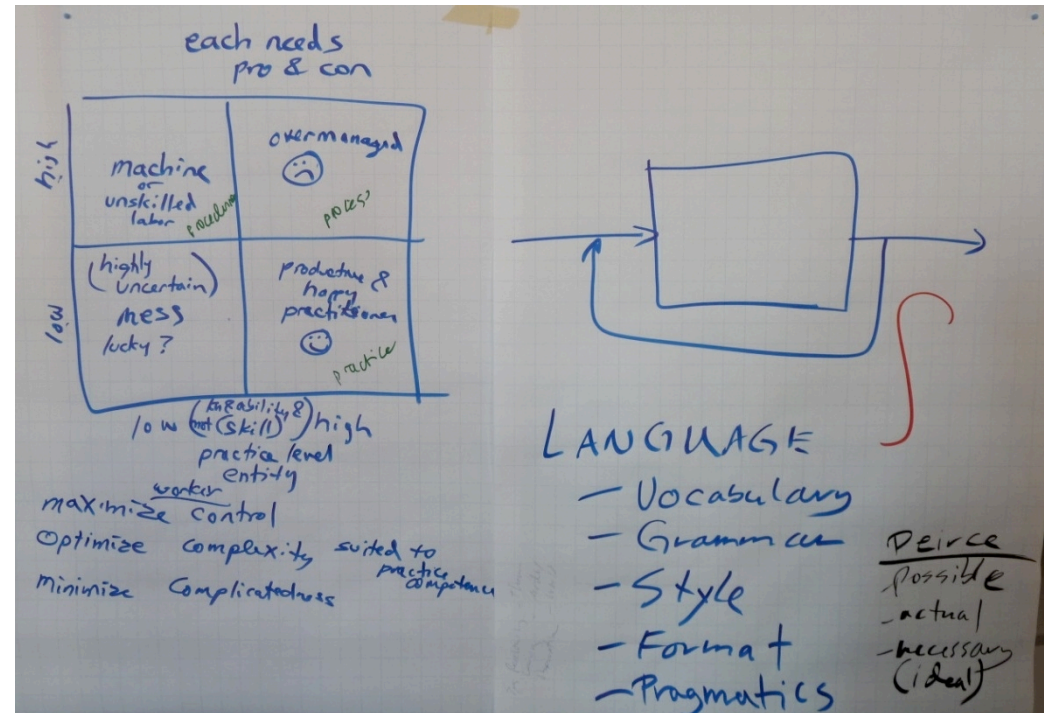 each needs
pro & con
high
machine
or
unskilled
labor
procedure
overmanaged
process
low
(highly
uncertain)
mess
lucky?
productive &
happy
practitioner
practice
low (& ability &) high
not (skill)
practice level
entity
worker
maximize control
Optimize complexity suited to
practice
competence
minimize complicatedness
LANGUAGE
- Vocabulary
- Grammar
- Style
- Format
- Pragmatics
Peirce
possible
- actual
- necessary
(ideal)